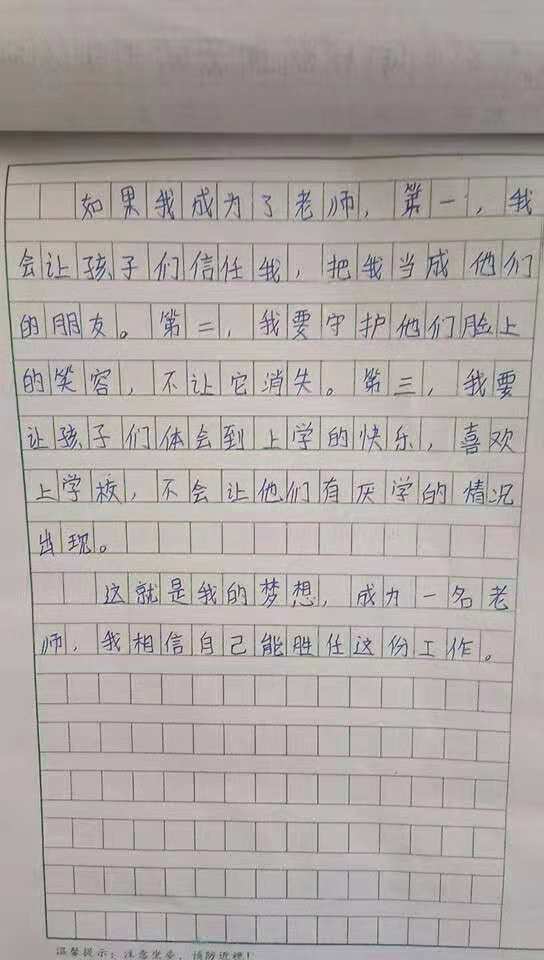 如果我成为了老师，第一，我
会让孩子们信任我，把我当成他们
的朋友。第二，我要守护他们脸上
的笑容，不让它消失。第三，我要
让孩子们体会到上学的快乐，喜欢
上学校，不会让他们有厌学的情况
出现。
这就是我的梦想，成为一名老
师，我相信自己能胜任这份工作。
温馨提示：注意坐姿，预防近视！